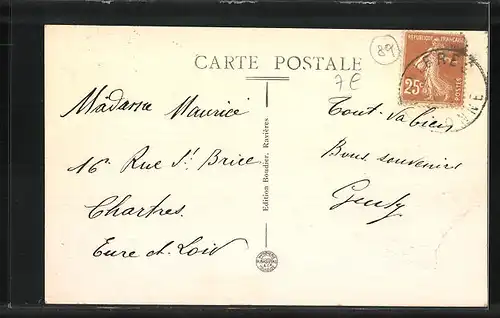 CARTE POSTALE
89
7E
REPUBLIQUE FRANÇAISE
25c
POSTES
Madame Maurice
16 Rue St Brice
Chartres
Eure et Loir
Edition Boudier, Ravières
Tout va bien
Bons souvenirs